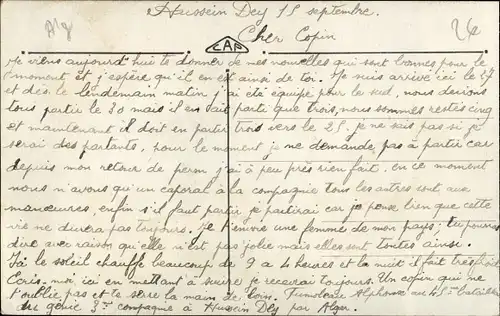 Hussein Dey 15 septembre.
Alg
26
Cher Copin
CAP
Je viens aujourd'hui te donner de mes nouvelles qui sont bonnes pour le
moment et j'espère qu'il en est ainsi de toi. Je suis arrivé ici le 27
et dès le lendemain matin j'ai été équipé pour le sud, nous devions
tous partir le 30 mais il en est parti que trois, nous sommes restés cinq
et maintenant il doit en partir trois vers le 25. je ne sais pas si je
serai des partants, pour le moment je ne demande pas à partir car
depuis mon retour de perm j'ai à peu près rien fait. en ce moment
nous n'avons qu'un caporal à la compagnie tous les autres sont aux
manœuvres, enfin s'il faut partir je partirai car je pense bien que cette
vie ne durera pas toujours. Je t'envoie une femme de mon pays; tu pourras
dire avec raison qu'elle n'est pas jolie mais elles sont toutes ainsi.
Ici le soleil chauffe beaucoup de 9 à 4 heures et la nuit il fait très
Ecris-moi ici en mettant à suivre je recevrai toujours. Un copin qui ne
t'oublie pas et te serre la main de loin. Alphonse au 45e bataillon
du génie 3e compagnie à Hussein Dey par Alger.